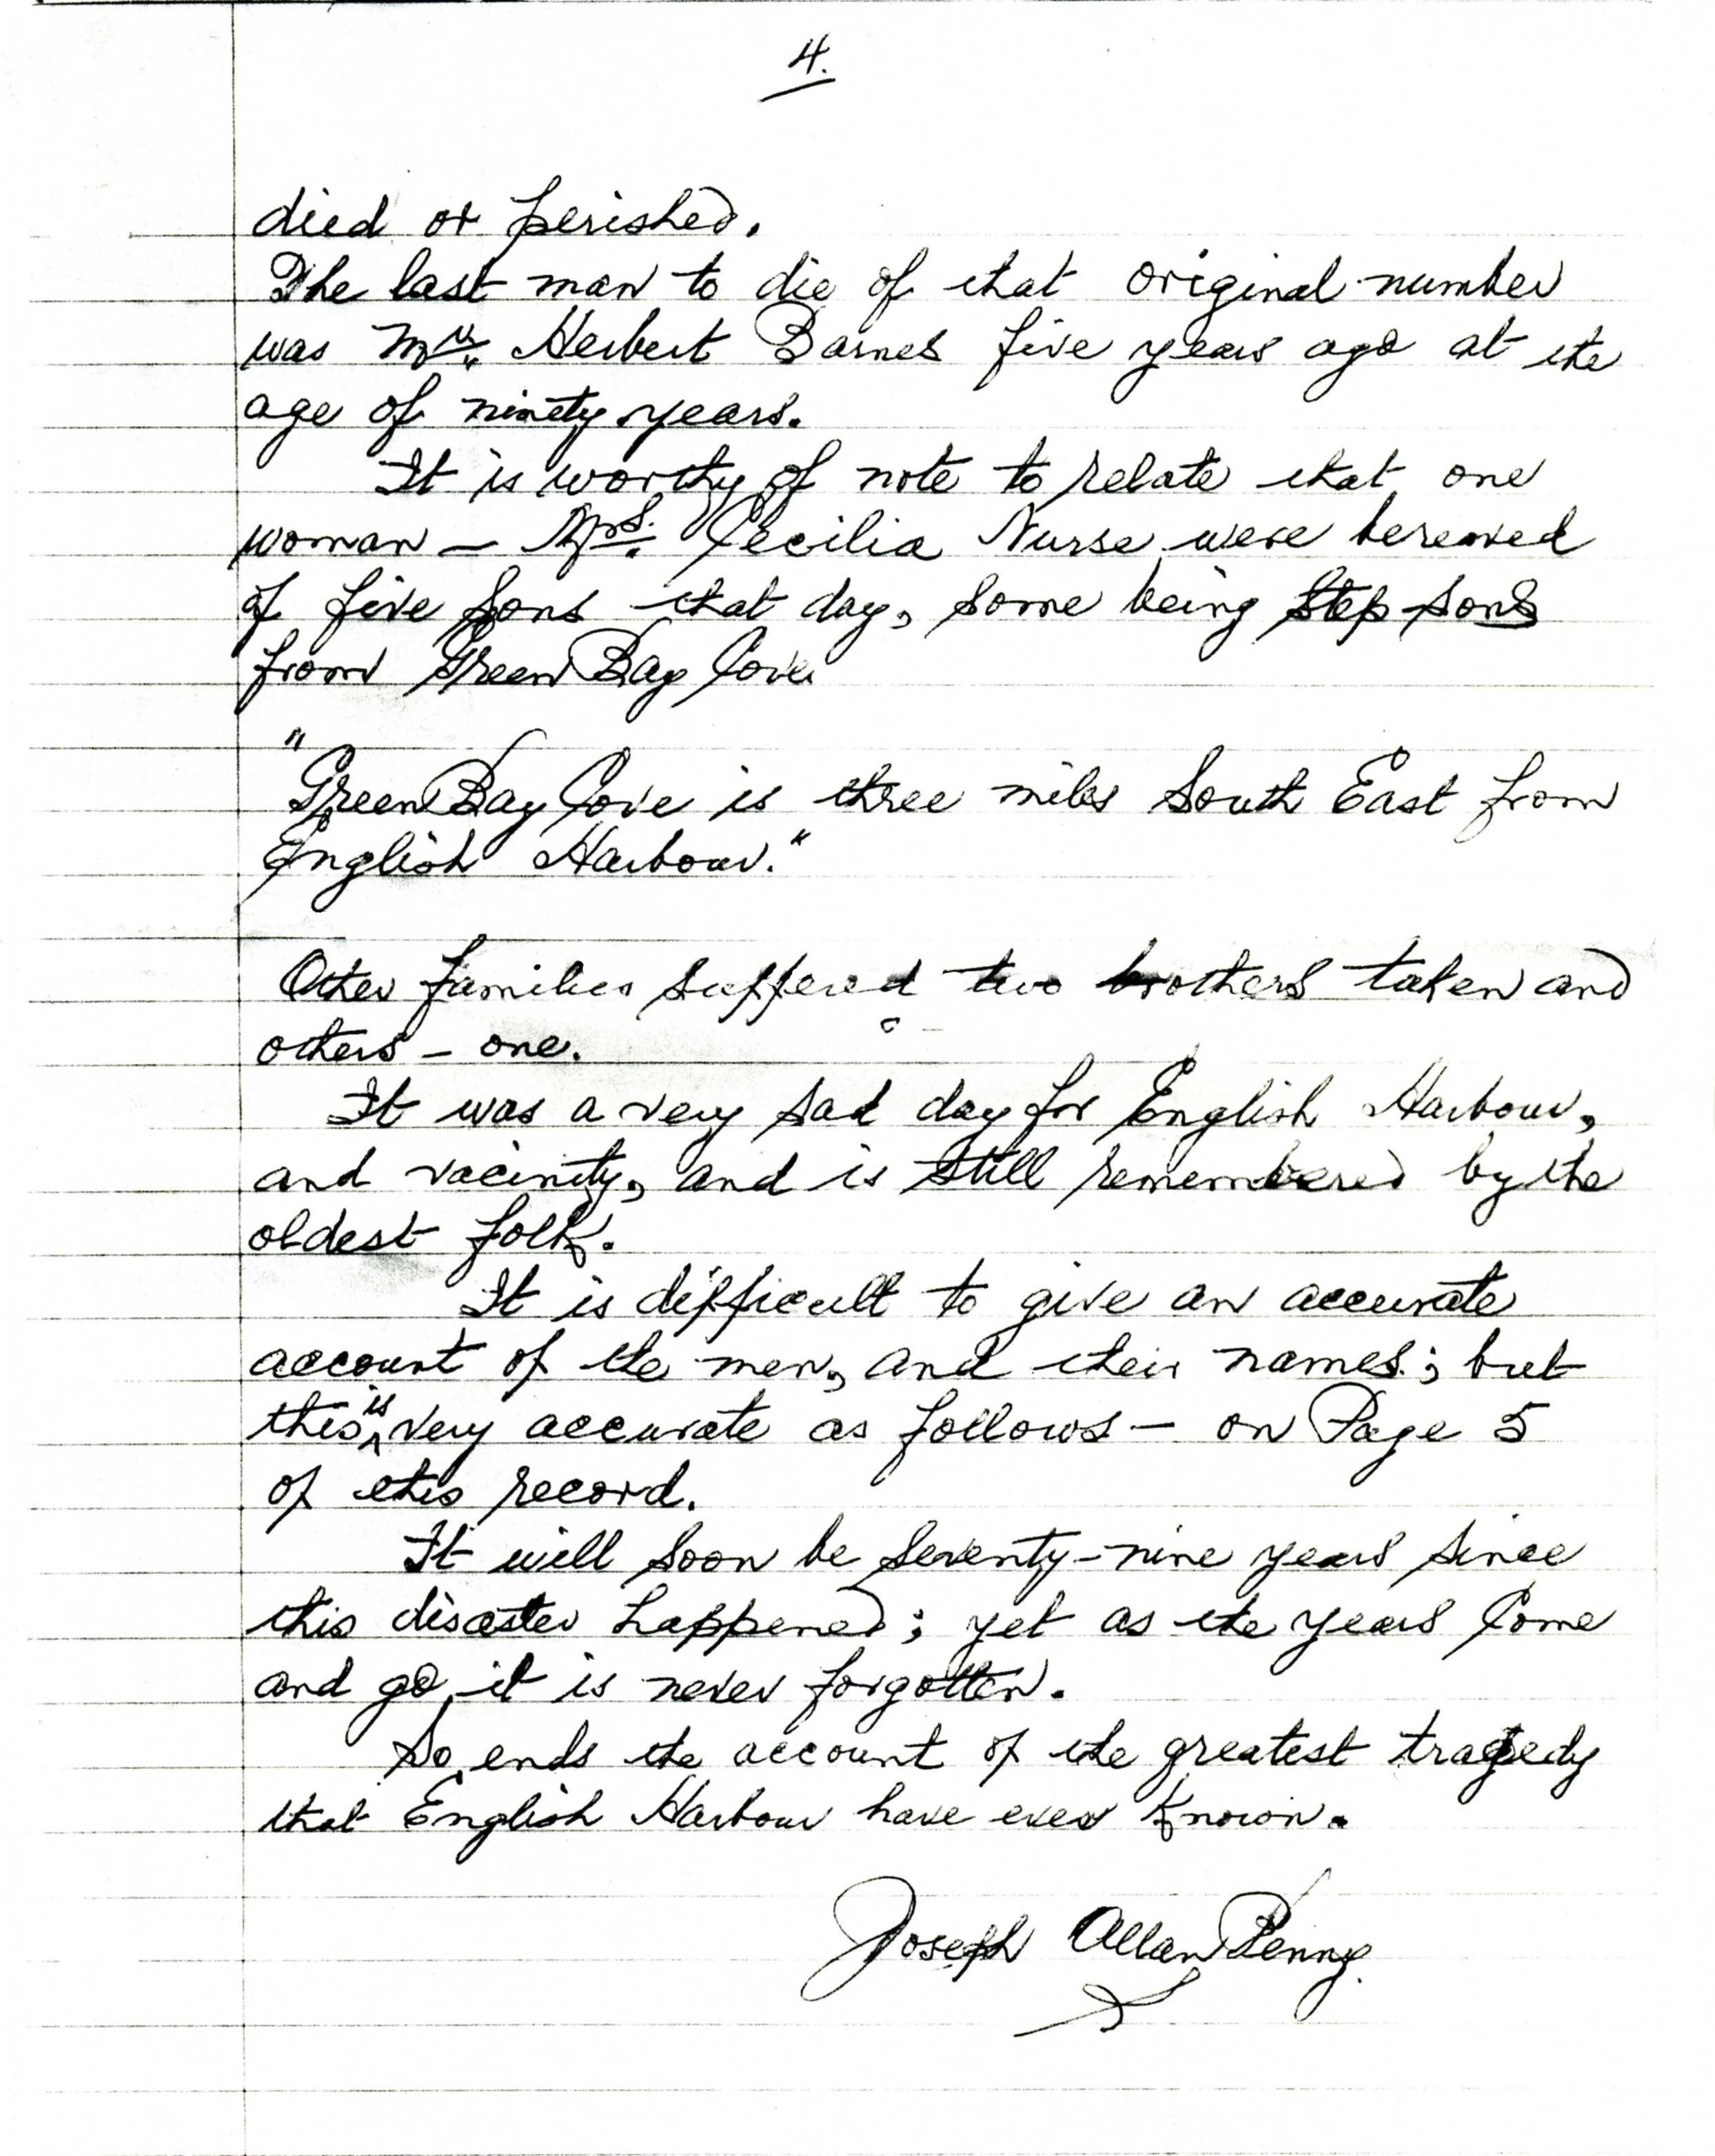 4.
died or perished.
The last man to die of that original number
was Mr. Herbert Barnes five years ago at the
age of ninety years.
It is worthy of note to relate that one
woman — Mrs. Cecilia Nurse were bereaved
of five sons that day, some being step-sons
from Green Bay Cove
"
Green Bay Cove is three miles South East from
English Harbour."
Other families suffered two brothers taken and
others – one.
It was a very sad day for English Harbour,
and vacinity, and is still remembered by the
oldest folk.
It is difficult to give an accurate
account of the men, and their names; but
this is very accurate as follows — on Page 5
of this record.
It will soon be seventy-nine years since
this disaster happened; yet as the years come
and go, it is never forgotten.
So, ends the account of the greatest tragedy
that English Harbour have ever known.
Joseph Allan Penny.